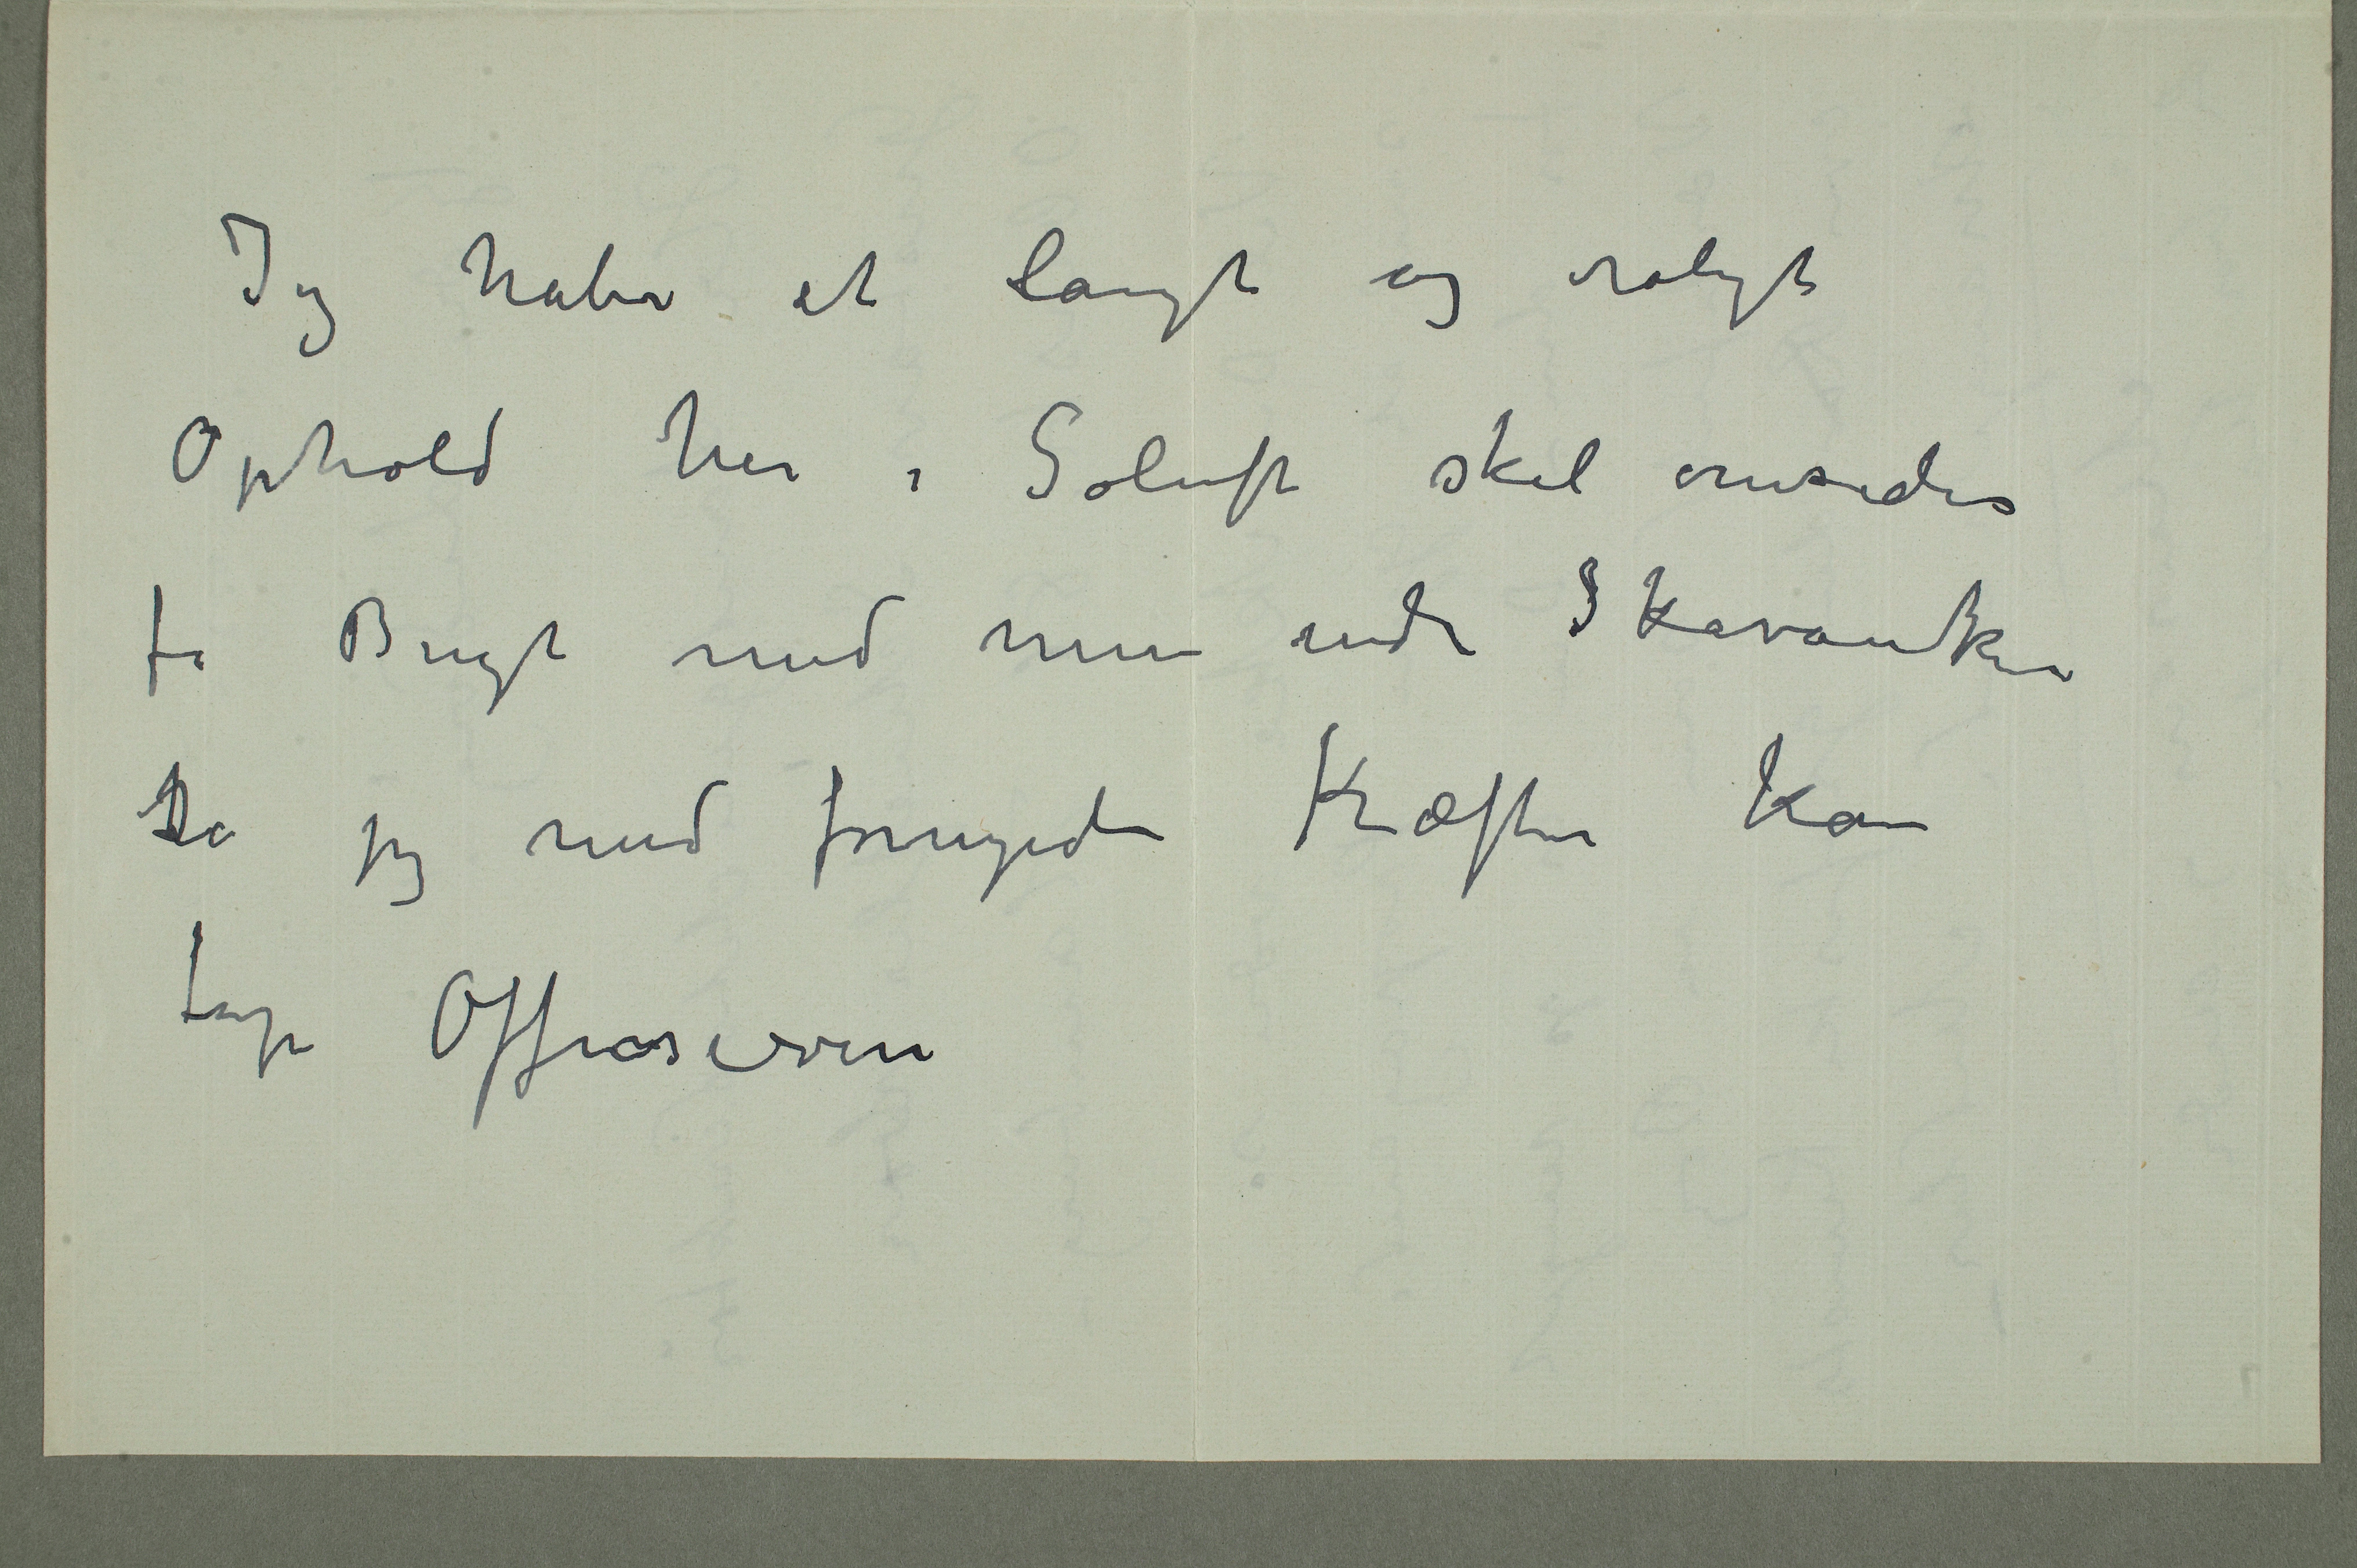 Jeg håber et langt og roligt
Ophold her i Soluft skal omsider
få Bugt med mine indre Skavanker
Da jeg med fornyede Kræfter kan
tage Offensiven